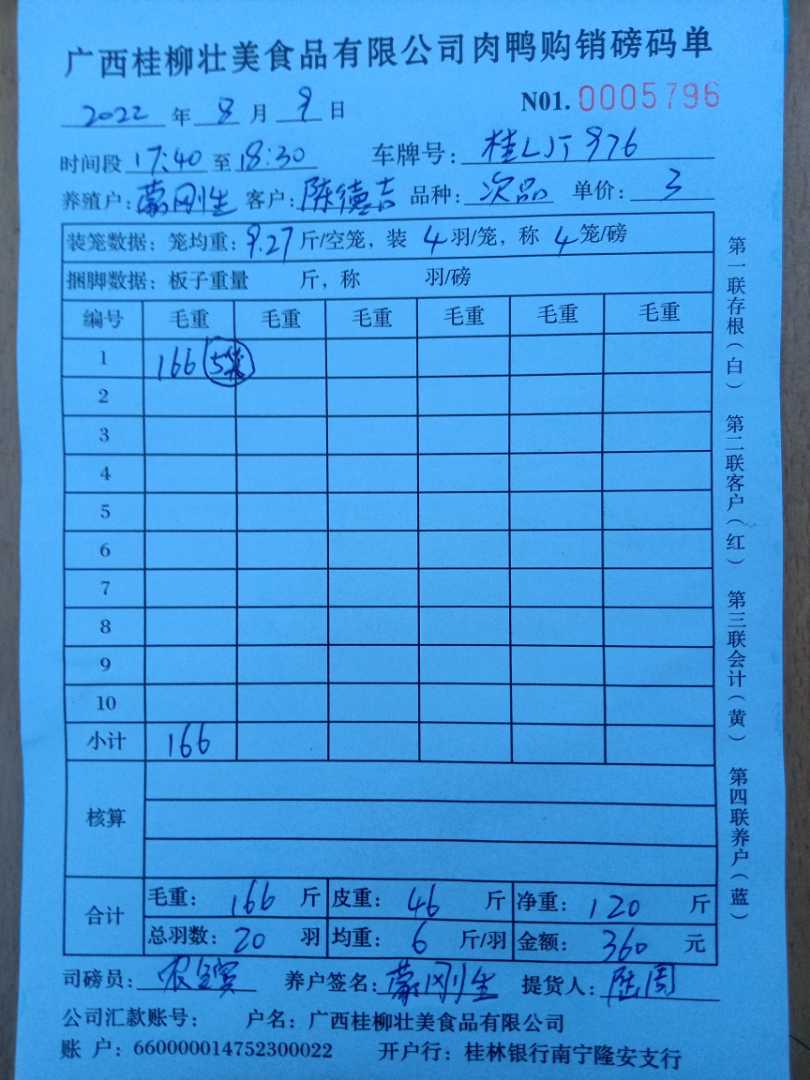 广西桂柳壮美食品有限公司肉鸭购销磅码单
2022 年 8 月 9 日 N01. 0005796
时间段 17:40 至 18:30 车牌号: 桂LJT976
养殖户: 蒙刚生 客户: 陈德吉 品种: 次品 单价: 3
装笼数据: 笼均重: 9.27 斤/空笼, 装 4 羽/笼, 称 4 笼/磅
捆脚数据: 板子重量 斤, 称 羽/磅
编号 毛重 毛重 毛重 毛重 毛重 毛重
1 166 5笼
2
3
4
5
6
7
8
9
10
小计 166
核算
合计 毛重: 166 斤 皮重: 46 斤 净重: 120 斤
总羽数: 20 羽 均重: 6 斤/羽 金额: 360 元
司磅员: 养户签名: 蒙刚生 提货人: 陆周
公司汇款账号: 户名: 广西桂柳壮美食品有限公司
账 户: 660000014752300022 开户行: 桂林银行南宁隆安支行
第一联存根(白) 第二联客户(红) 第三联会计(黄) 第四联养户(蓝)